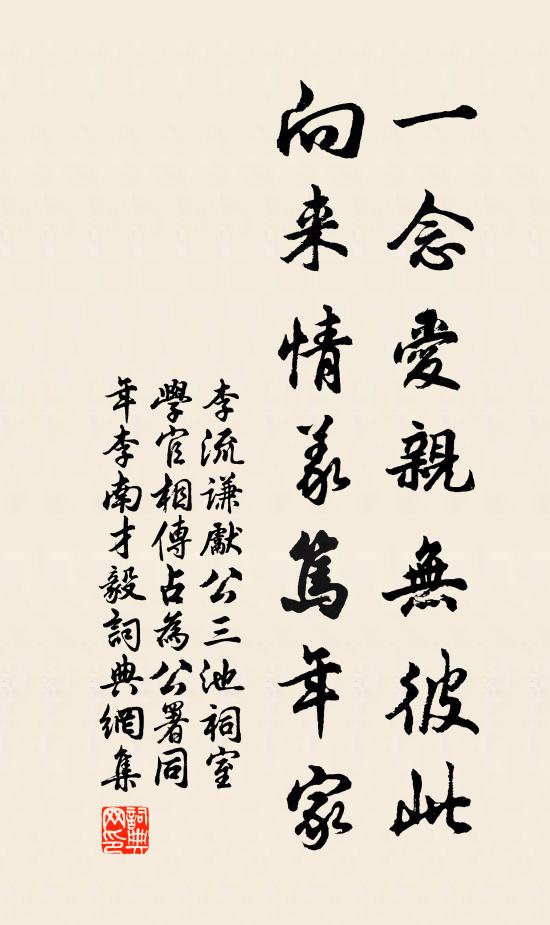 一念愛親無彼此
向来情義篤年家
李流謙獻公三池祠室
學官相傳占為公署同
年李南才毅詞典網集
詞典網印